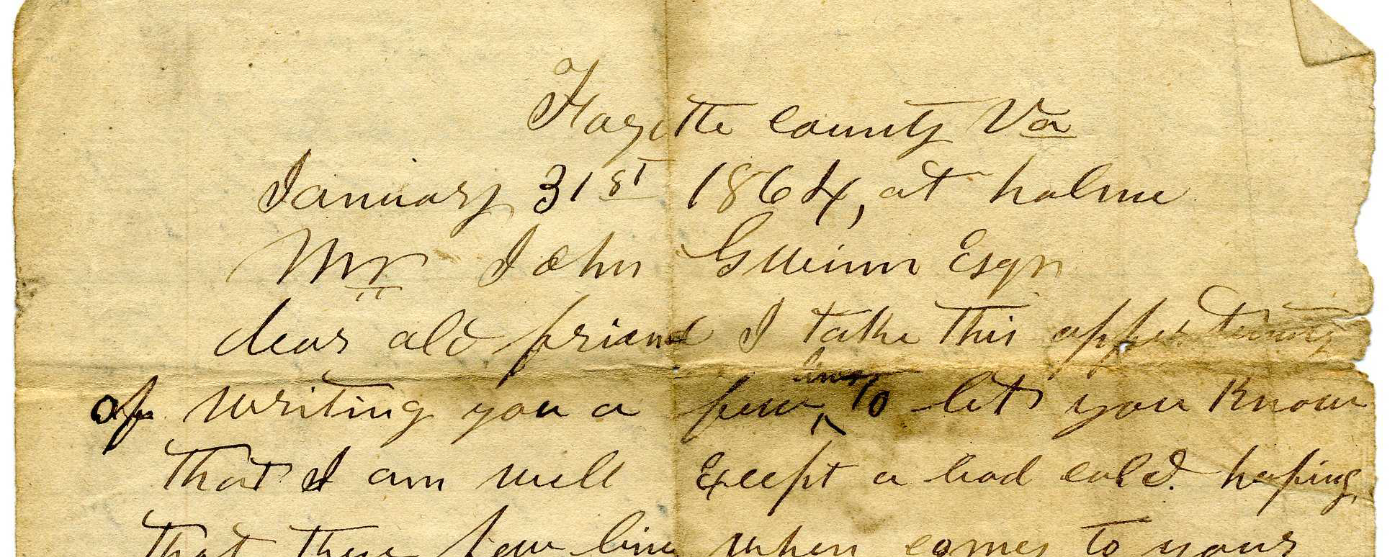 Fayette county Va
January 31st 1864, at holme
Mr John Gwinn Esqr
dear old friend I take this oppertunity
of writing you a few lines to let you Know
that I am well Except a bad cold. hoping
that these few lines when comes to your